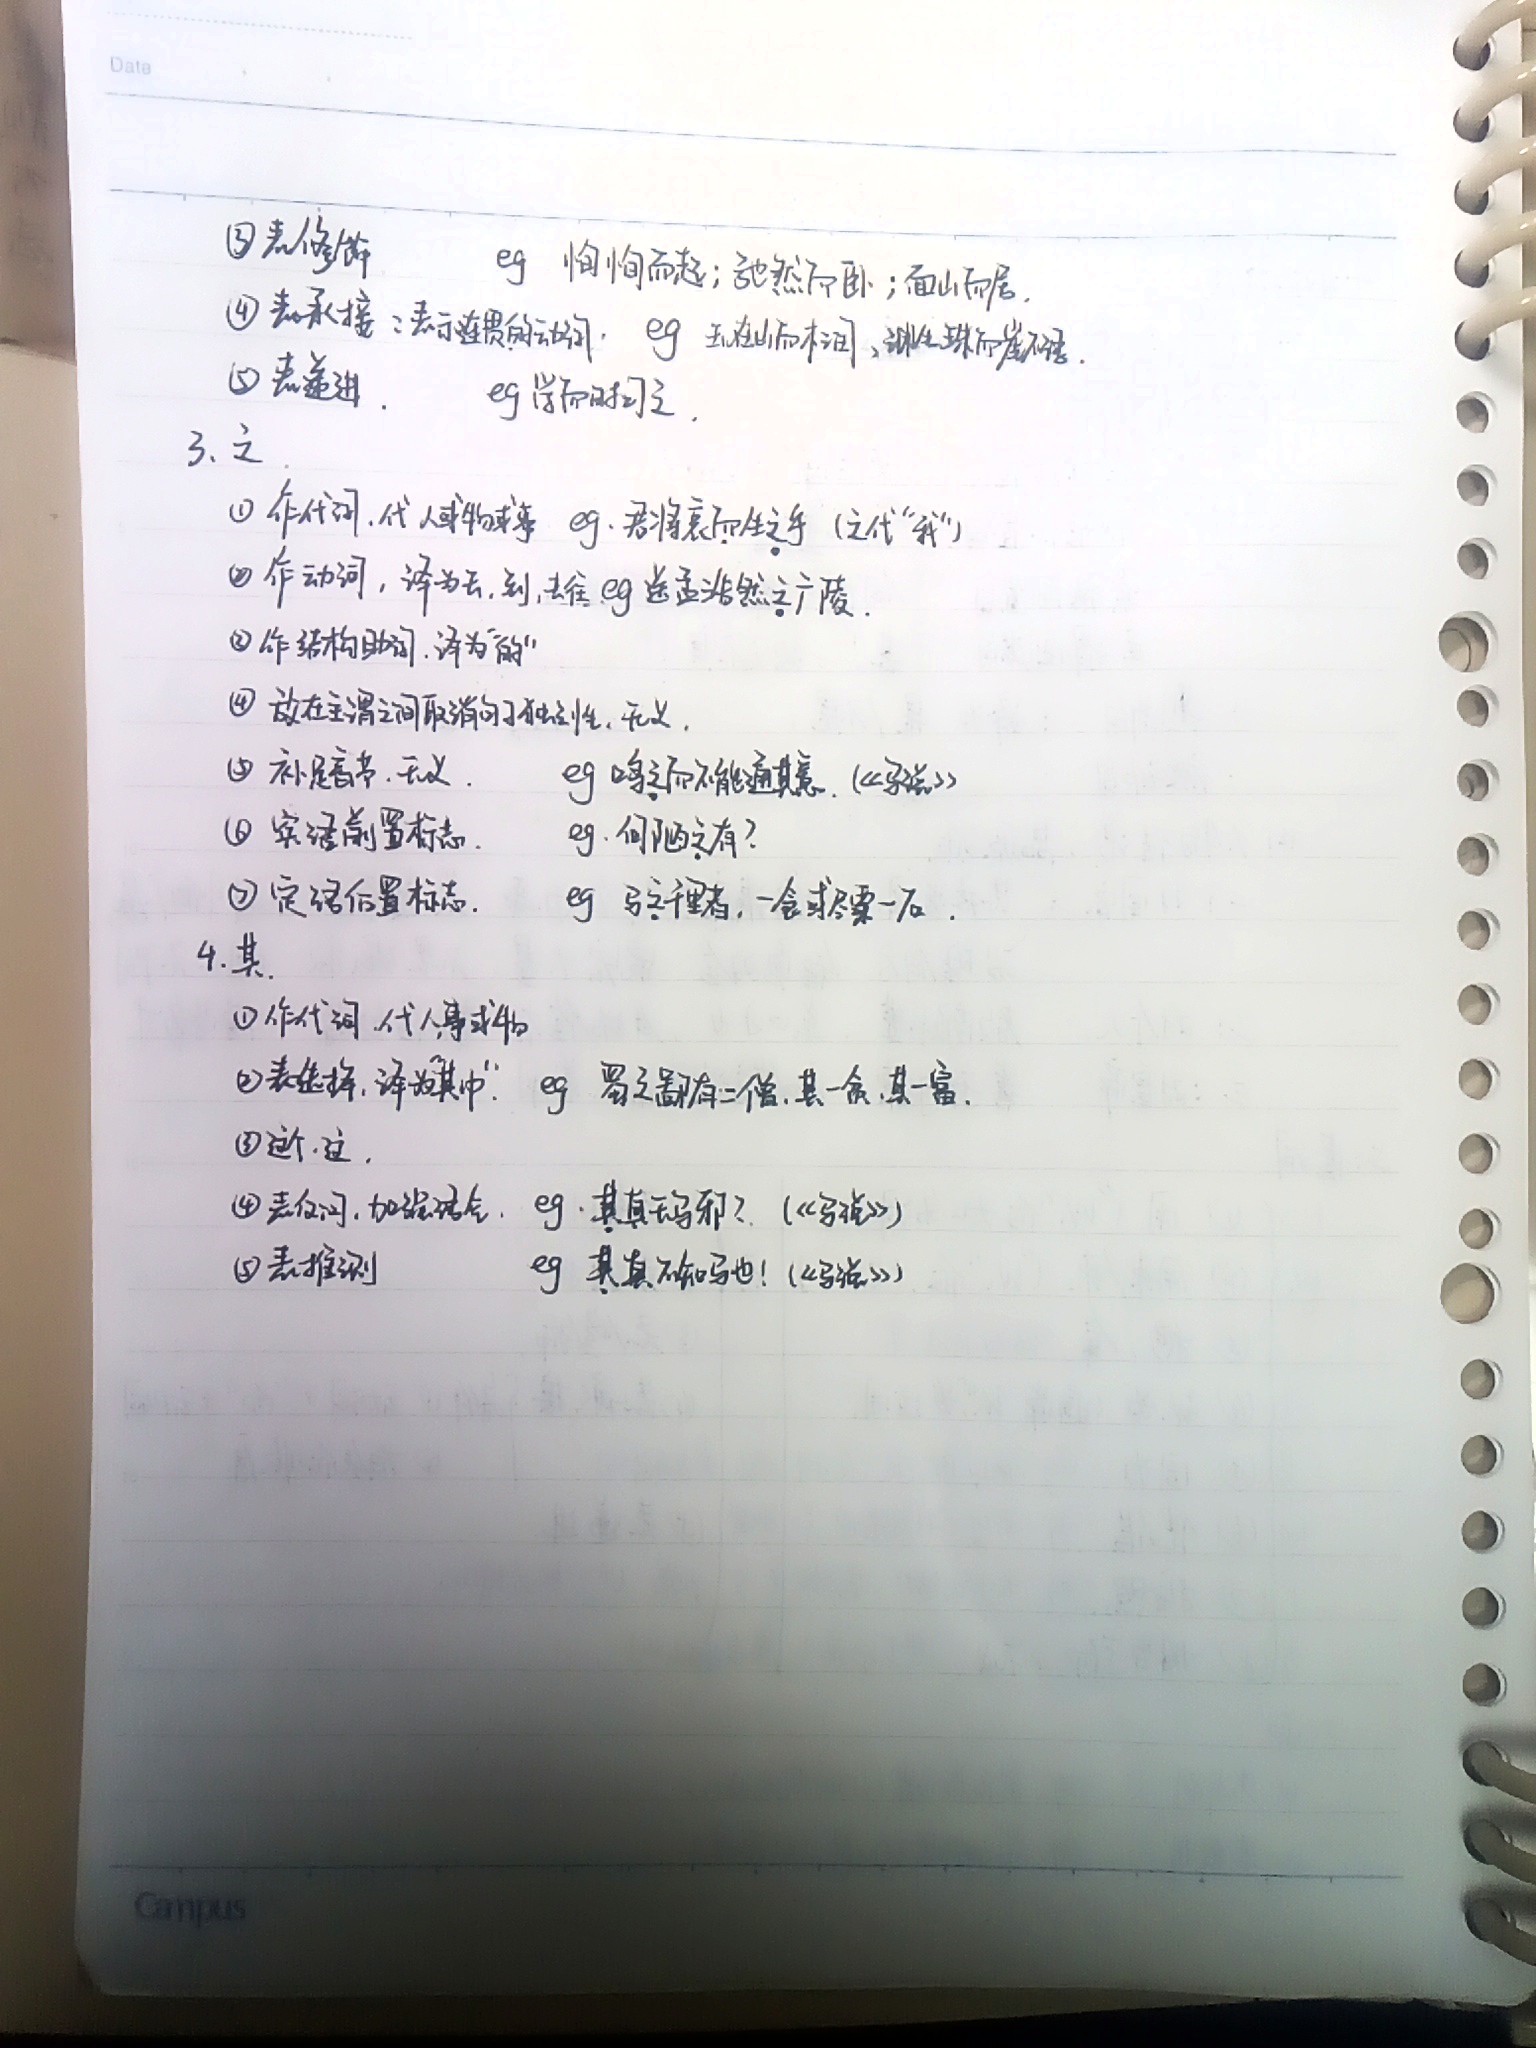 Date
③ 表修饰 eg 恂恂而起；弛然而卧；面山而居.
④ 表承接：表示连贯的动词. eg 玉在山而木润、渊生珠而崖不枯.
⑤ 表递进. eg 学而时习之.
3、之.
① 作代词、代人或物或事 eg. 君将哀而生之乎（之代“我”）
② 作动词，译为去、到、去往 eg 送孟浩然之广陵.
③ 作结构助词、译为“的”
④ 放在主谓之间取消句子独立性、无义.
⑤ 补足音节、无义. eg 鸣之而不能通其意.（《马说》
⑥ 宾语前置标志. eg. 何陋之有？
⑦ 定语后置标志. eg 马之千里者，一食或尽粟一石.
4. 其.
① 作代词、代人事或物
② 表选择，译为“其中”. eg 蜀之鄙有二僧、其一贪、其一富.
③ 这个、这.
④ 表反问，加强语气. eg. 其真无马邪？（《马说》）
⑤ 表推测 eg 其真不知马也！（《马说》）
Campus